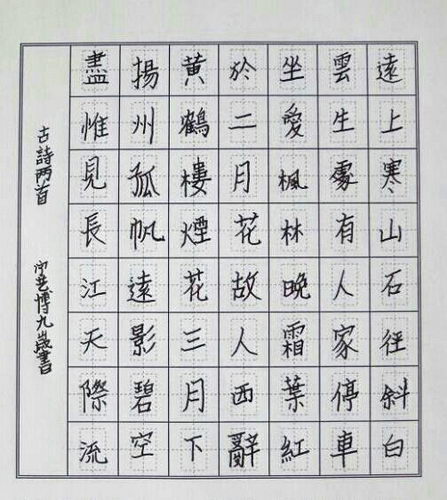 遠上寒山石径斜白
雲生處有人家停車
坐愛楓林晚霜葉紅
於二月花故人西辭
黄鶴樓煙花三月下
揚州孤帆遠影碧空
盡惟見長江天際流
古詩两首 博九歲書